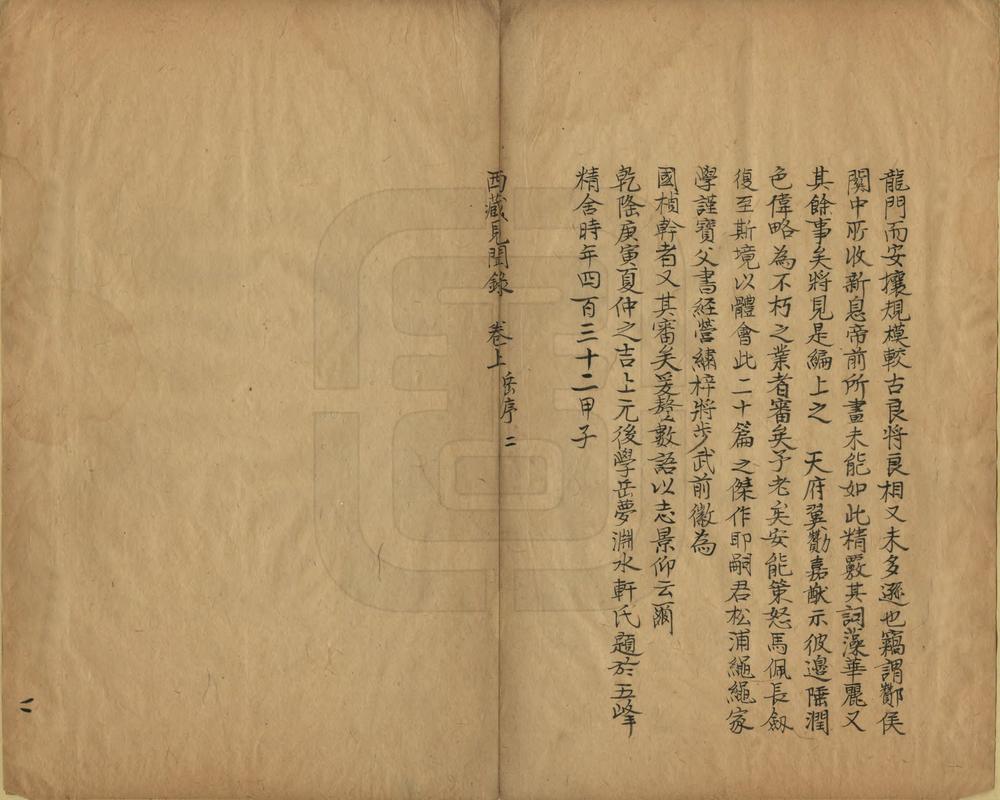 龍門而安攘規模較古良將良相又未多遜也竊謂酇侯
關中所收新息帝前所畫未能如此精覈其詞藻華麗又
其餘事矣將見是編上之　天府翼勷嘉猷示彼邊陲潤
色偉略為不朽之業者審矣予老矣安能策怒馬佩長劔
復至斯境以體會此二十篇之傑作耶嗣君松浦繩繩家
學謹寶父書経營繡梓將步武前徽為
國楨幹者又其審矣爰贅數語以志景仰云爾
乾隆庚寅夏仲之吉上元後學岳夢淵水軒氏題於五峰
精舍時年四百三十二甲子
西藏見聞錄　卷上　岳序　二